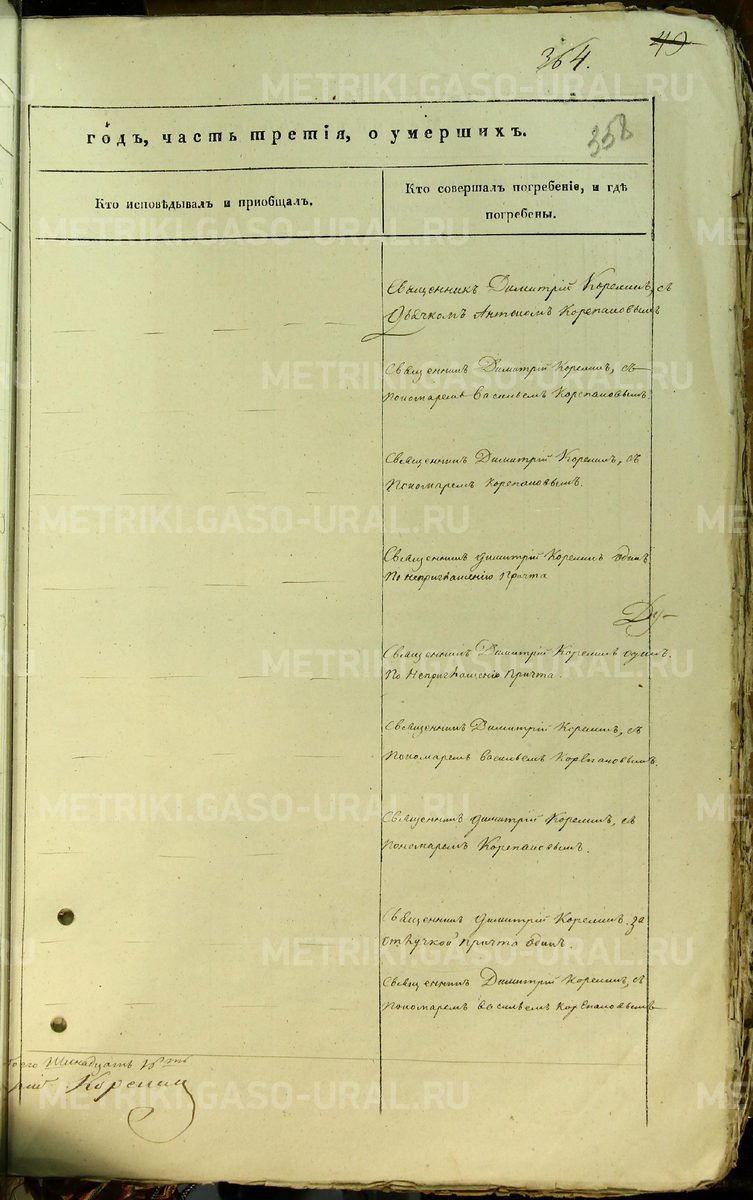 40
364.
358
годъ, часть третія, о умершихъ.
Кто исповѣдывалъ и пріобщалъ.
Кто совершалъ погребеніе, и гдѣ
погребены.
Священникъ Димитрій Корелинъ, съ
Дьячкомъ Антономъ Корепановымъ
Священникъ Димитрій Корелинъ, съ
Пономаремъ Васильемъ Корепановымъ.
Священникъ Димитрій Корелинъ, съ
Пономаремъ Корепановымъ.
Священникъ Димитрій Корелинъ одинъ
По неприглашенію Причта
Ду-
Священникъ Димитрій Корелинъ одинъ.
По Неприглашенію Причта.
Священникъ Димитрій Корелинъ, съ
Пономаремъ Васильемъ Корепановымъ.
Священникъ Димитрій Корелинъ, съ
Пономаремъ Корепановымъ.
Священникъ Димитрій Корелинъ. за
отлучкой Причта одинъ.
Священникъ Димитрій Корелинъ, съ
Пономаремъ Васильемъ Корепановымъ
рій Корелин
METRIKI.GASO-URAL.RU